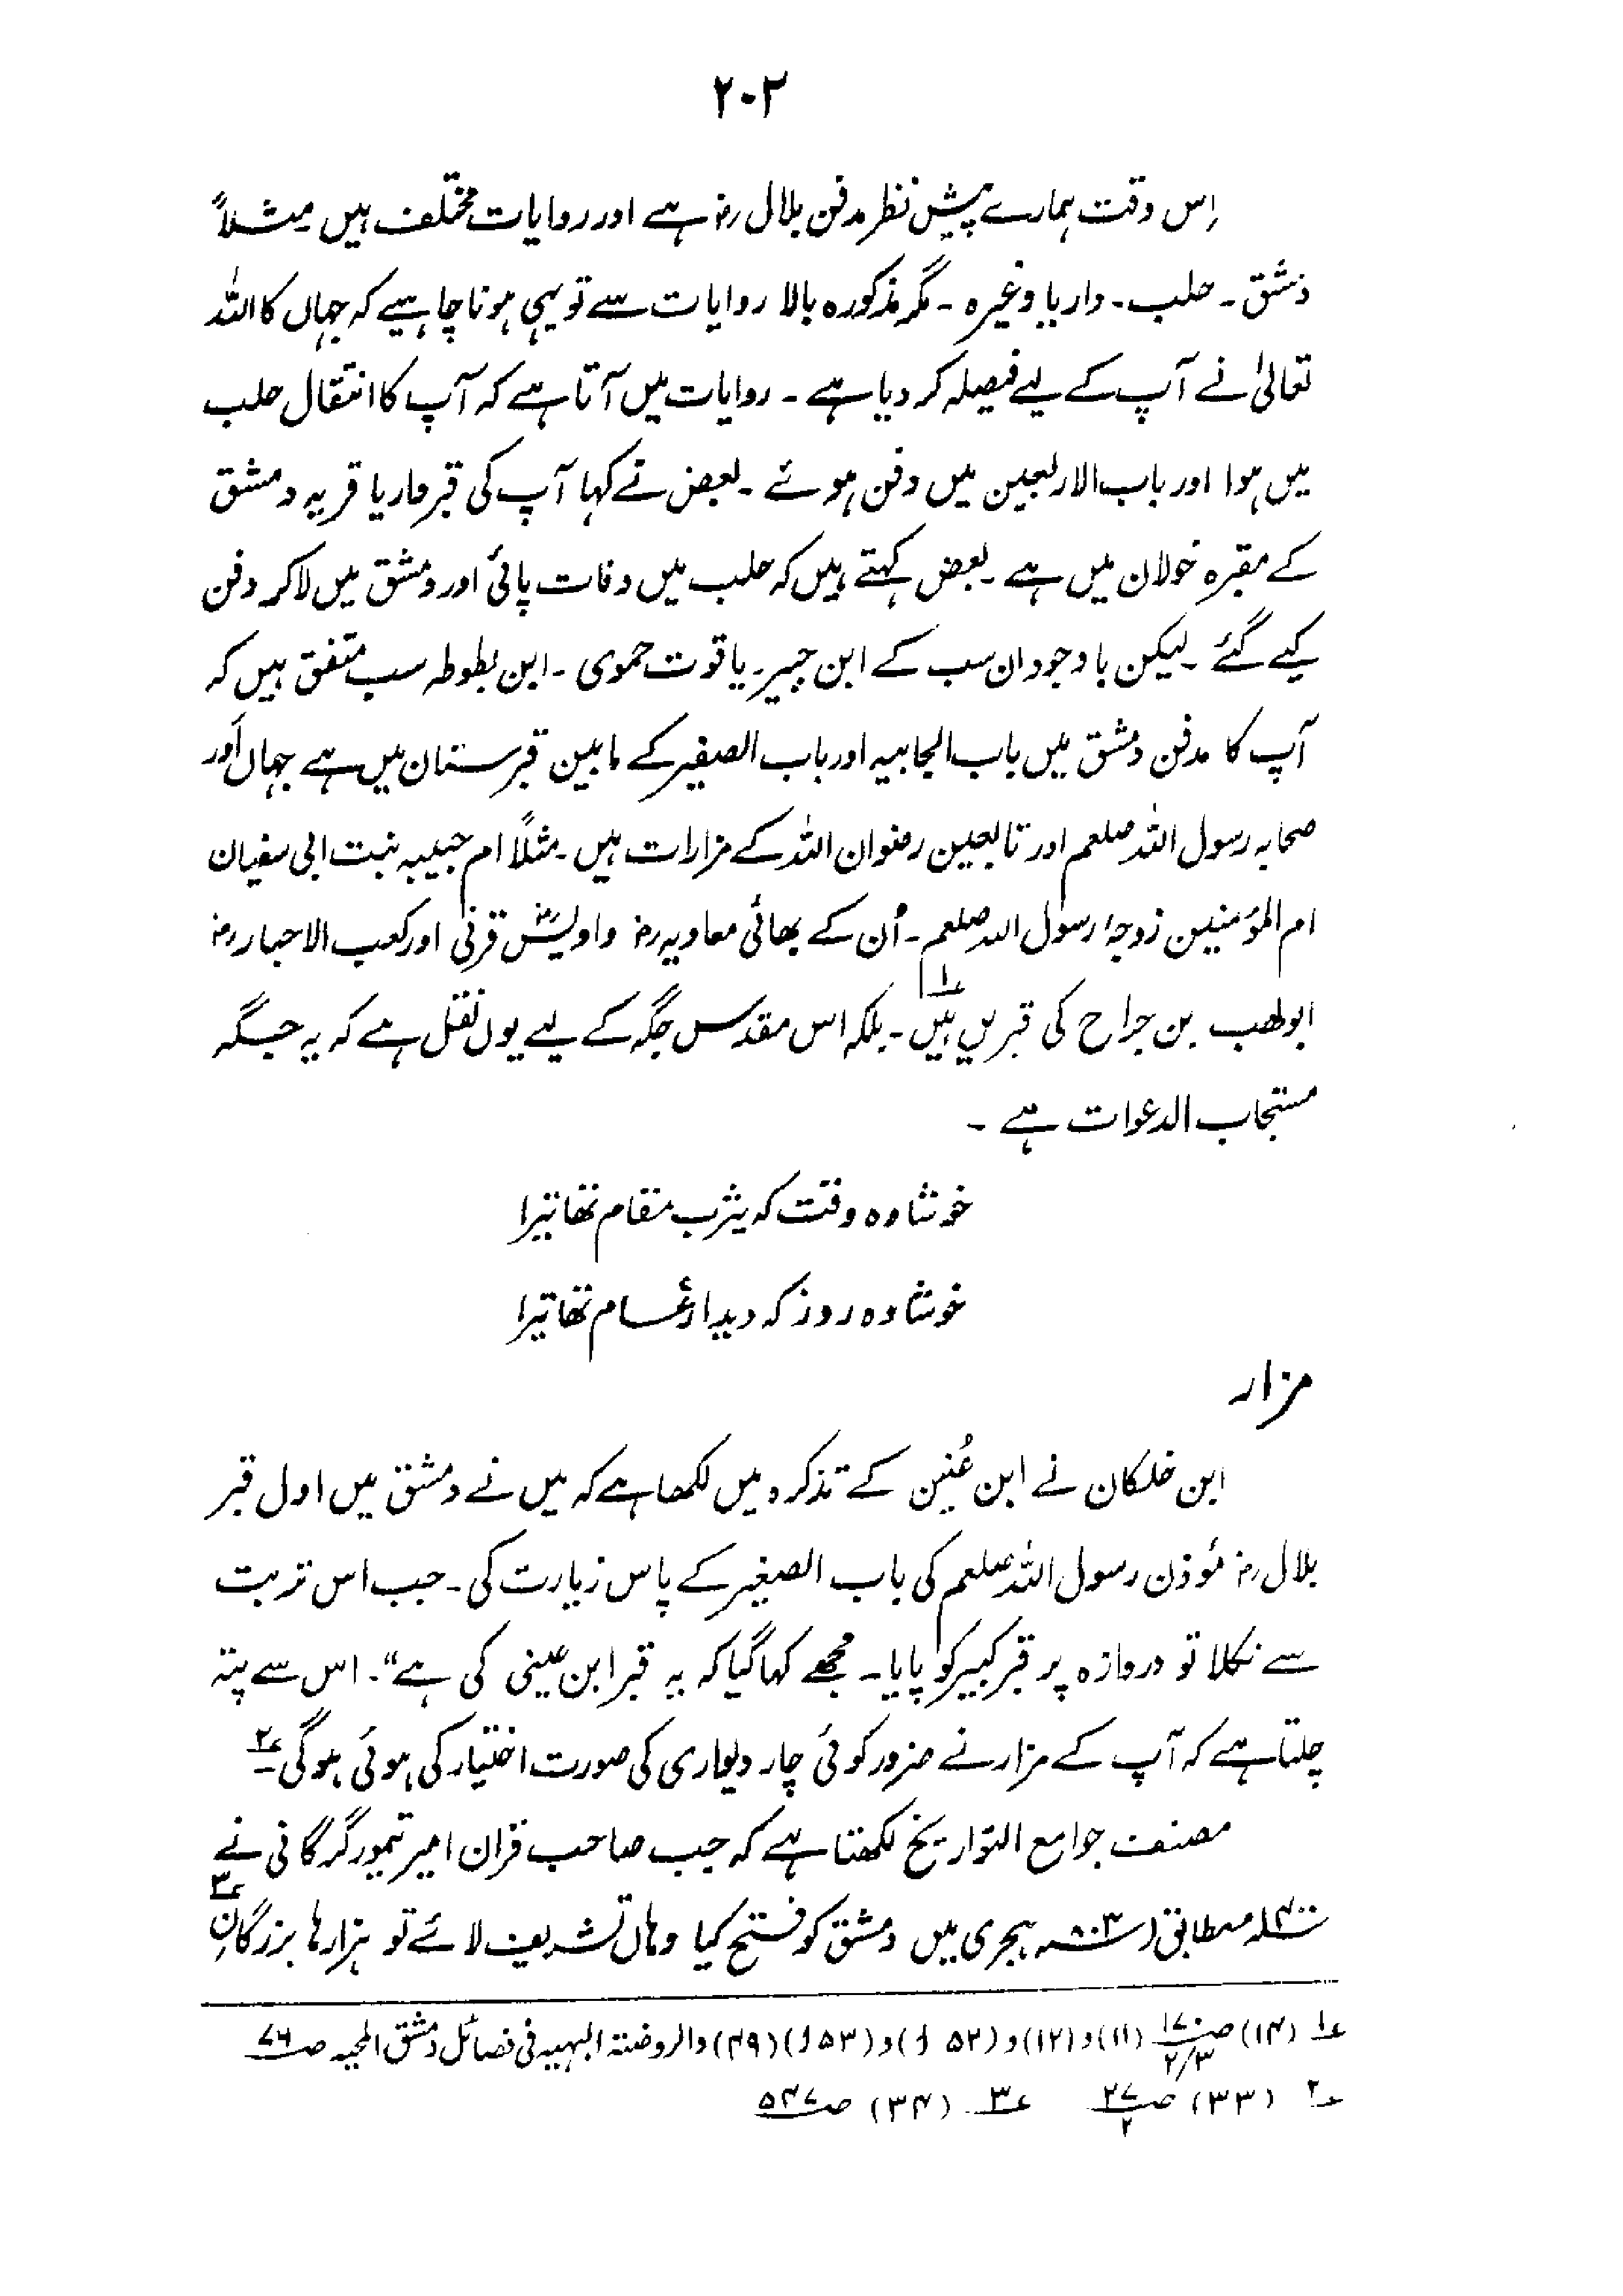 ۲۰۲
اِس وقت ہمارے پیش نظر مدفن بلال رضؓ ہے اور روایات مختلف ہیں ۔ مثلاً
دمشق ۔ حلب ۔ داریا وغیرہ ۔ مگر مذکورہ بالا روایات سے تو یہی ہونا چاہیے کہ جہاں کا اللہ
تعالیٰ نے آپ کے لیے فیصلہ کر دیا ہے ۔ روایات میں آتا ہے کہ آپ کا انتقال حلب
میں ہوا اور باب الاربعین میں دفن ہوئے ۔ بعض نے کہا آپ کی قبر داریا قریہ دمشق
کے مقبرہ خولان میں ہے ۔ بعض کہتے ہیں کہ حلب میں وفات پائی اور دمشق میں لا کر دفن
کیے گئے ۔ لیکن باوجود ان سب کے ابن جبیر ۔ یاقوت حموی ۔ ابن بطوطہ سب متفق ہیں کہ
آپ کا مدفن دمشق میں باب الجابیہ اور باب الصغیر کے مابین قبرستان میں ہے جہاں اَور
صحابہ رسول اللہ صلعم اور تابعین رضوان اللہ کے مزارات ہیں ۔ مثلاً ام حبیبہ بنت ابی سفیان
ام المؤمنین زوجۂ رسول اللہ صلعم ۔ اُن کے بھائی معاویہ رضؓ و اویسؓ قرنی اور کعب الاحبار رضؓ
ابولھب بن جراح کی قبریں ہیں ۔ؑ۱ بلکہ اس مقدس جگہ کے لیے یوں نقل ہے کہ یہ جگہ
مستجاب الدعوات ہے ۔
خوشا وہ وقت کہ یثرب مقام تھا تیرا
خوشا وہ روز کہ دیدار عام تھا تیرا
مزار
ابن خلکان نے ابن عُنین کے تذکرہ میں لکھا ہے کہ میں نے دمشق میں اول قبر
بلال رضؓ مؤذن رسول اللہ صلعم کی باب الصغیر کے پاس زیارت کی ۔ جب اس تربت
سے نکلا تو دروازہ پر قبر کبیر کو پایا ۔ مجھے کہا گیا کہ یہ قبر ابن عینی کی ہے“ ۔ اس سے پتہ
چلتا ہے کہ آپ کے مزار نے ضرور کوئی چار دیواری کی صورت اختیار کی ہوئی ہوگی ۔ؑ۲
مصنف جوامع التواریخ لکھتا ہے کہ جب صاحب قران امیر تیمور گرگانی نے
۱۴۰۰ء مطابق ۸۰۳ھ ہجری میں دمشق کو فتح کیا وہاں تشریف لائے تو ہزارہا بزرگانِ ؑ۳
ؑ۱ (۱۴) صـ ۱۷۰ ۲/۳ (۱۱) و (۱۲) و (۵۲ ل) و (۵۳ ل) (۴۹) والروضتہ البہیہ فی فضائل دمشق المحیہ صـ ۷۶
ؑ۲ (۳۳) صـ ۲۷ ۲ ؑ۳ (۳۴) صـ ۵۴۷